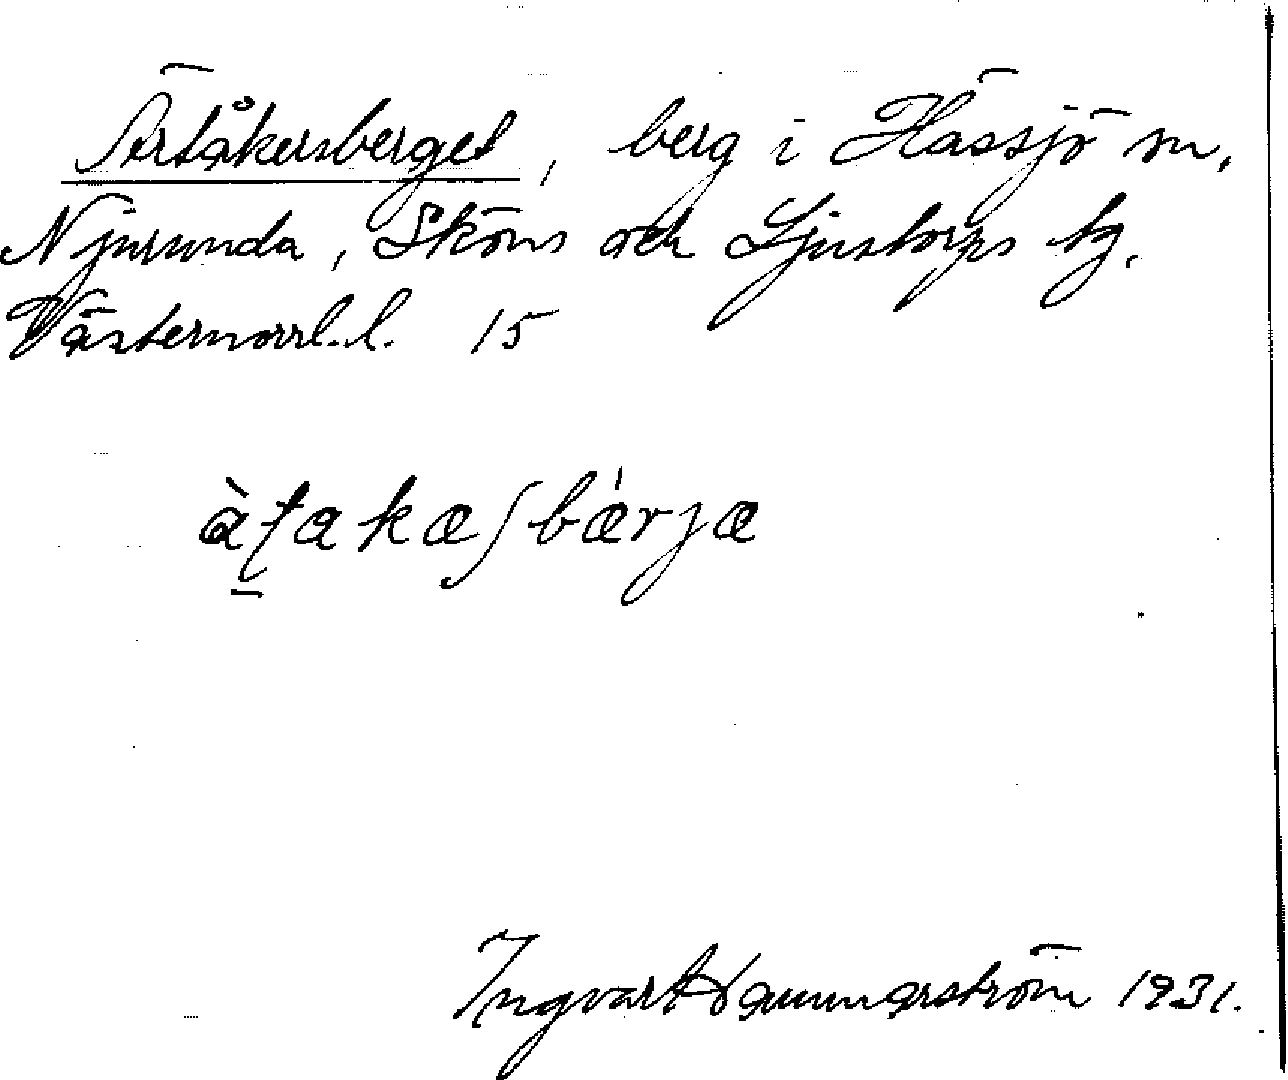 Ärtåkersberget, berg i Hässjö sn,
Njurunda, Sköns och Ljustorps tg.
Västernorrl. l. 15
àṭakæʃbǽrjæ
Ingvar Hammarström 1931.